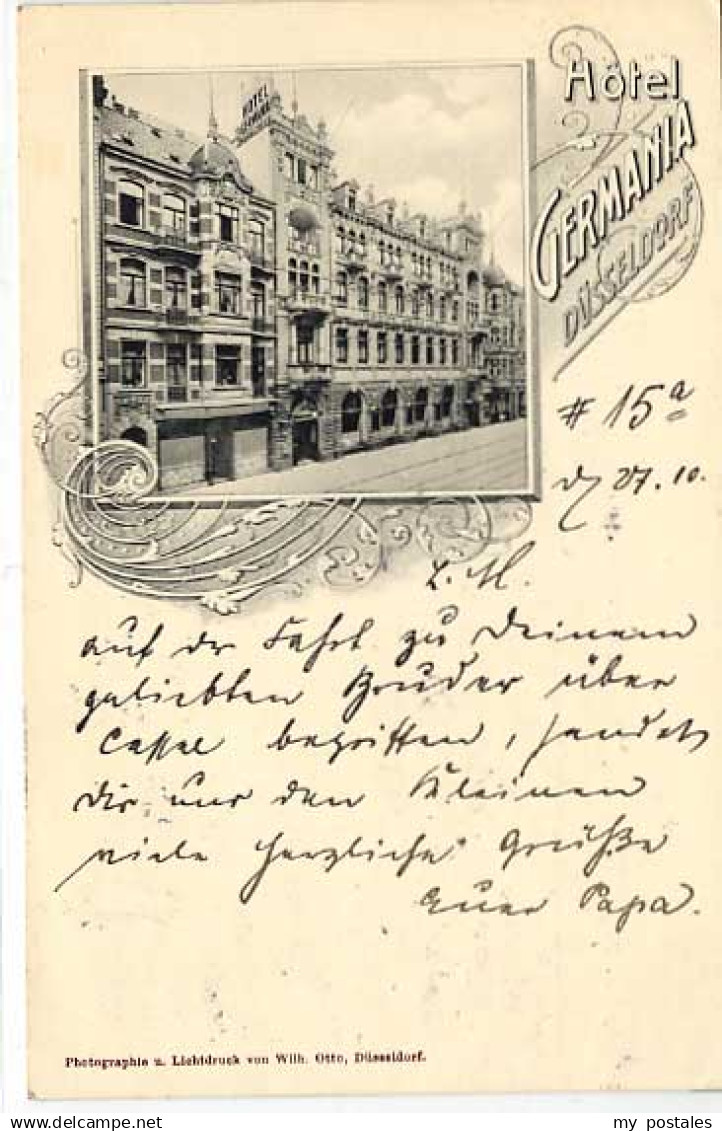 Hôtel
GERMANIA
DÜSSELDORF
HOTEL
# 15a
d 27.10.
L. M.
auf der Fahrt zu Deinem
geliebten Bruder über
Cassel begriffen, sendet
Dir und den Kleinen
viele herzliche Grüße
Euer Papa.
Photographie u. Lichtdruck von Wilh. Otto, Düsseldorf.
my postales